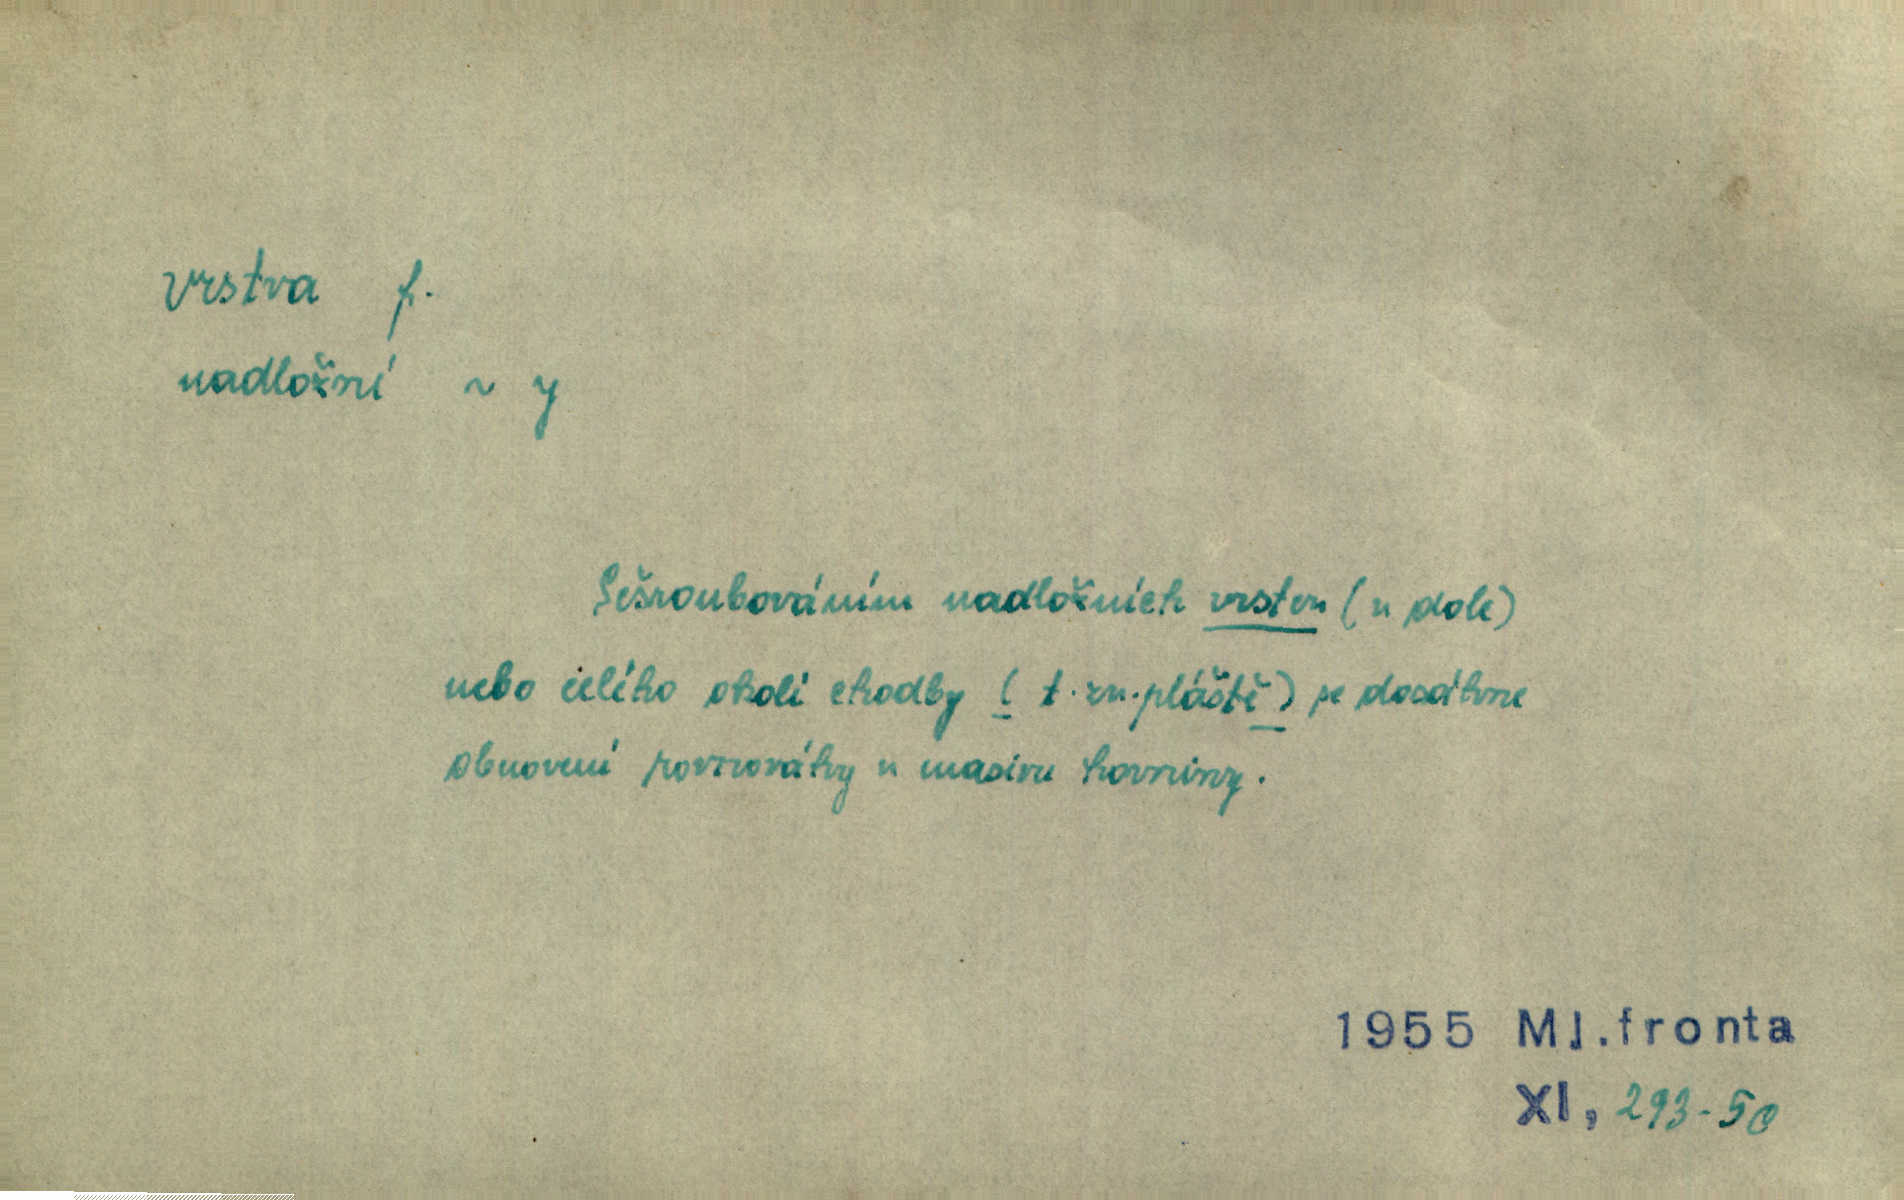 vrstva f.
nadložní ~ y
Sešroubováním nadložních vrstev (v dole)
nebo celého okolí chodby (t.zv.pláště) se dosáhne
obnovení rovnováhy v masivu horniny.
1955 Ml.fronta
XI, 293-5c